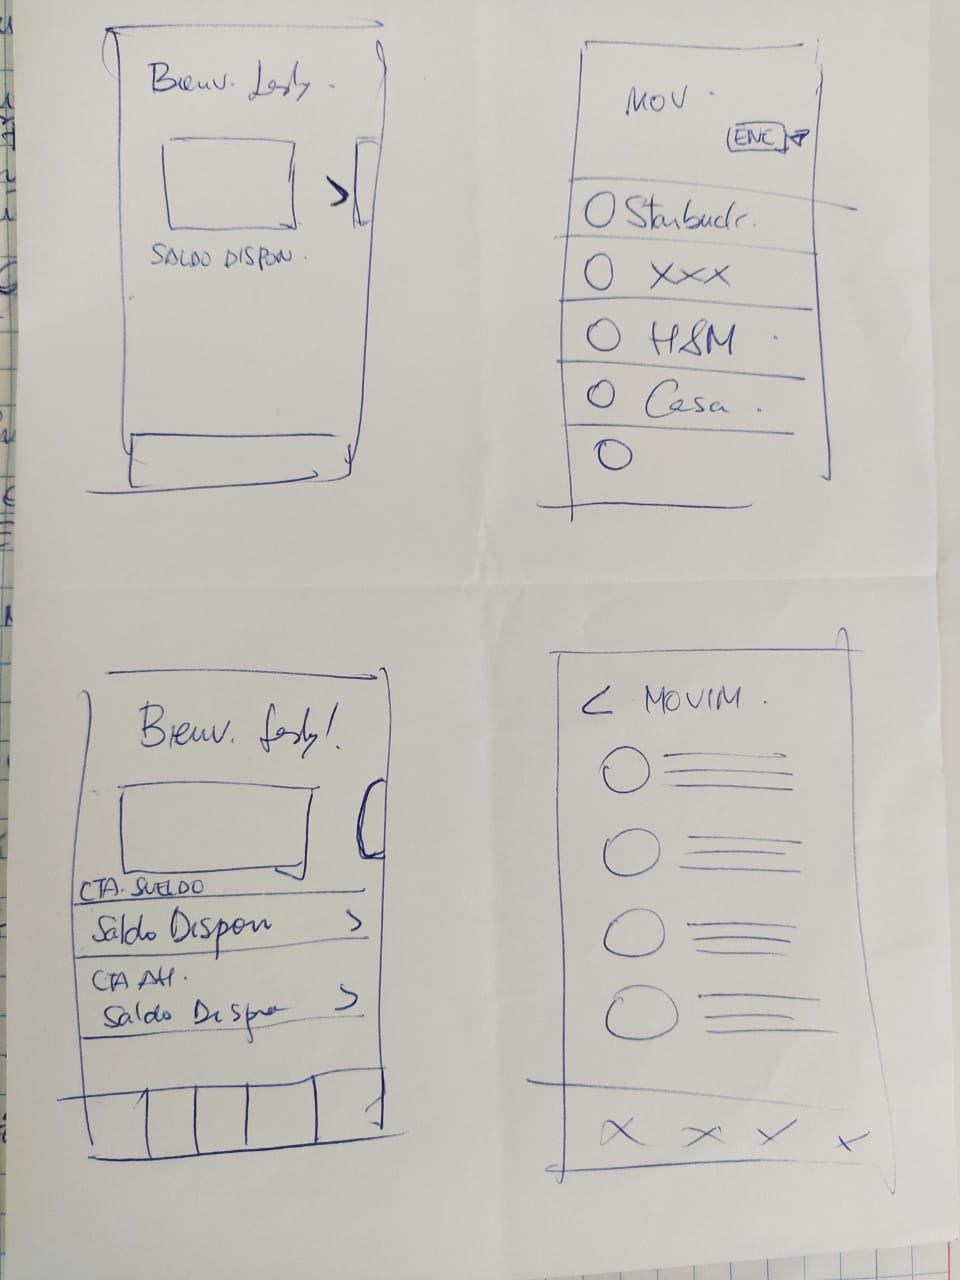 Bienv. Lesly.
SALDO DISPON.
MOV.
ENC
Starbucks.
XXX
H&M
Casa.
Bienv. Lesly!
CTA. SUELDO
Saldo Dispon
CTA AH.
Saldo Dispon
< MOVIM.
X X X X